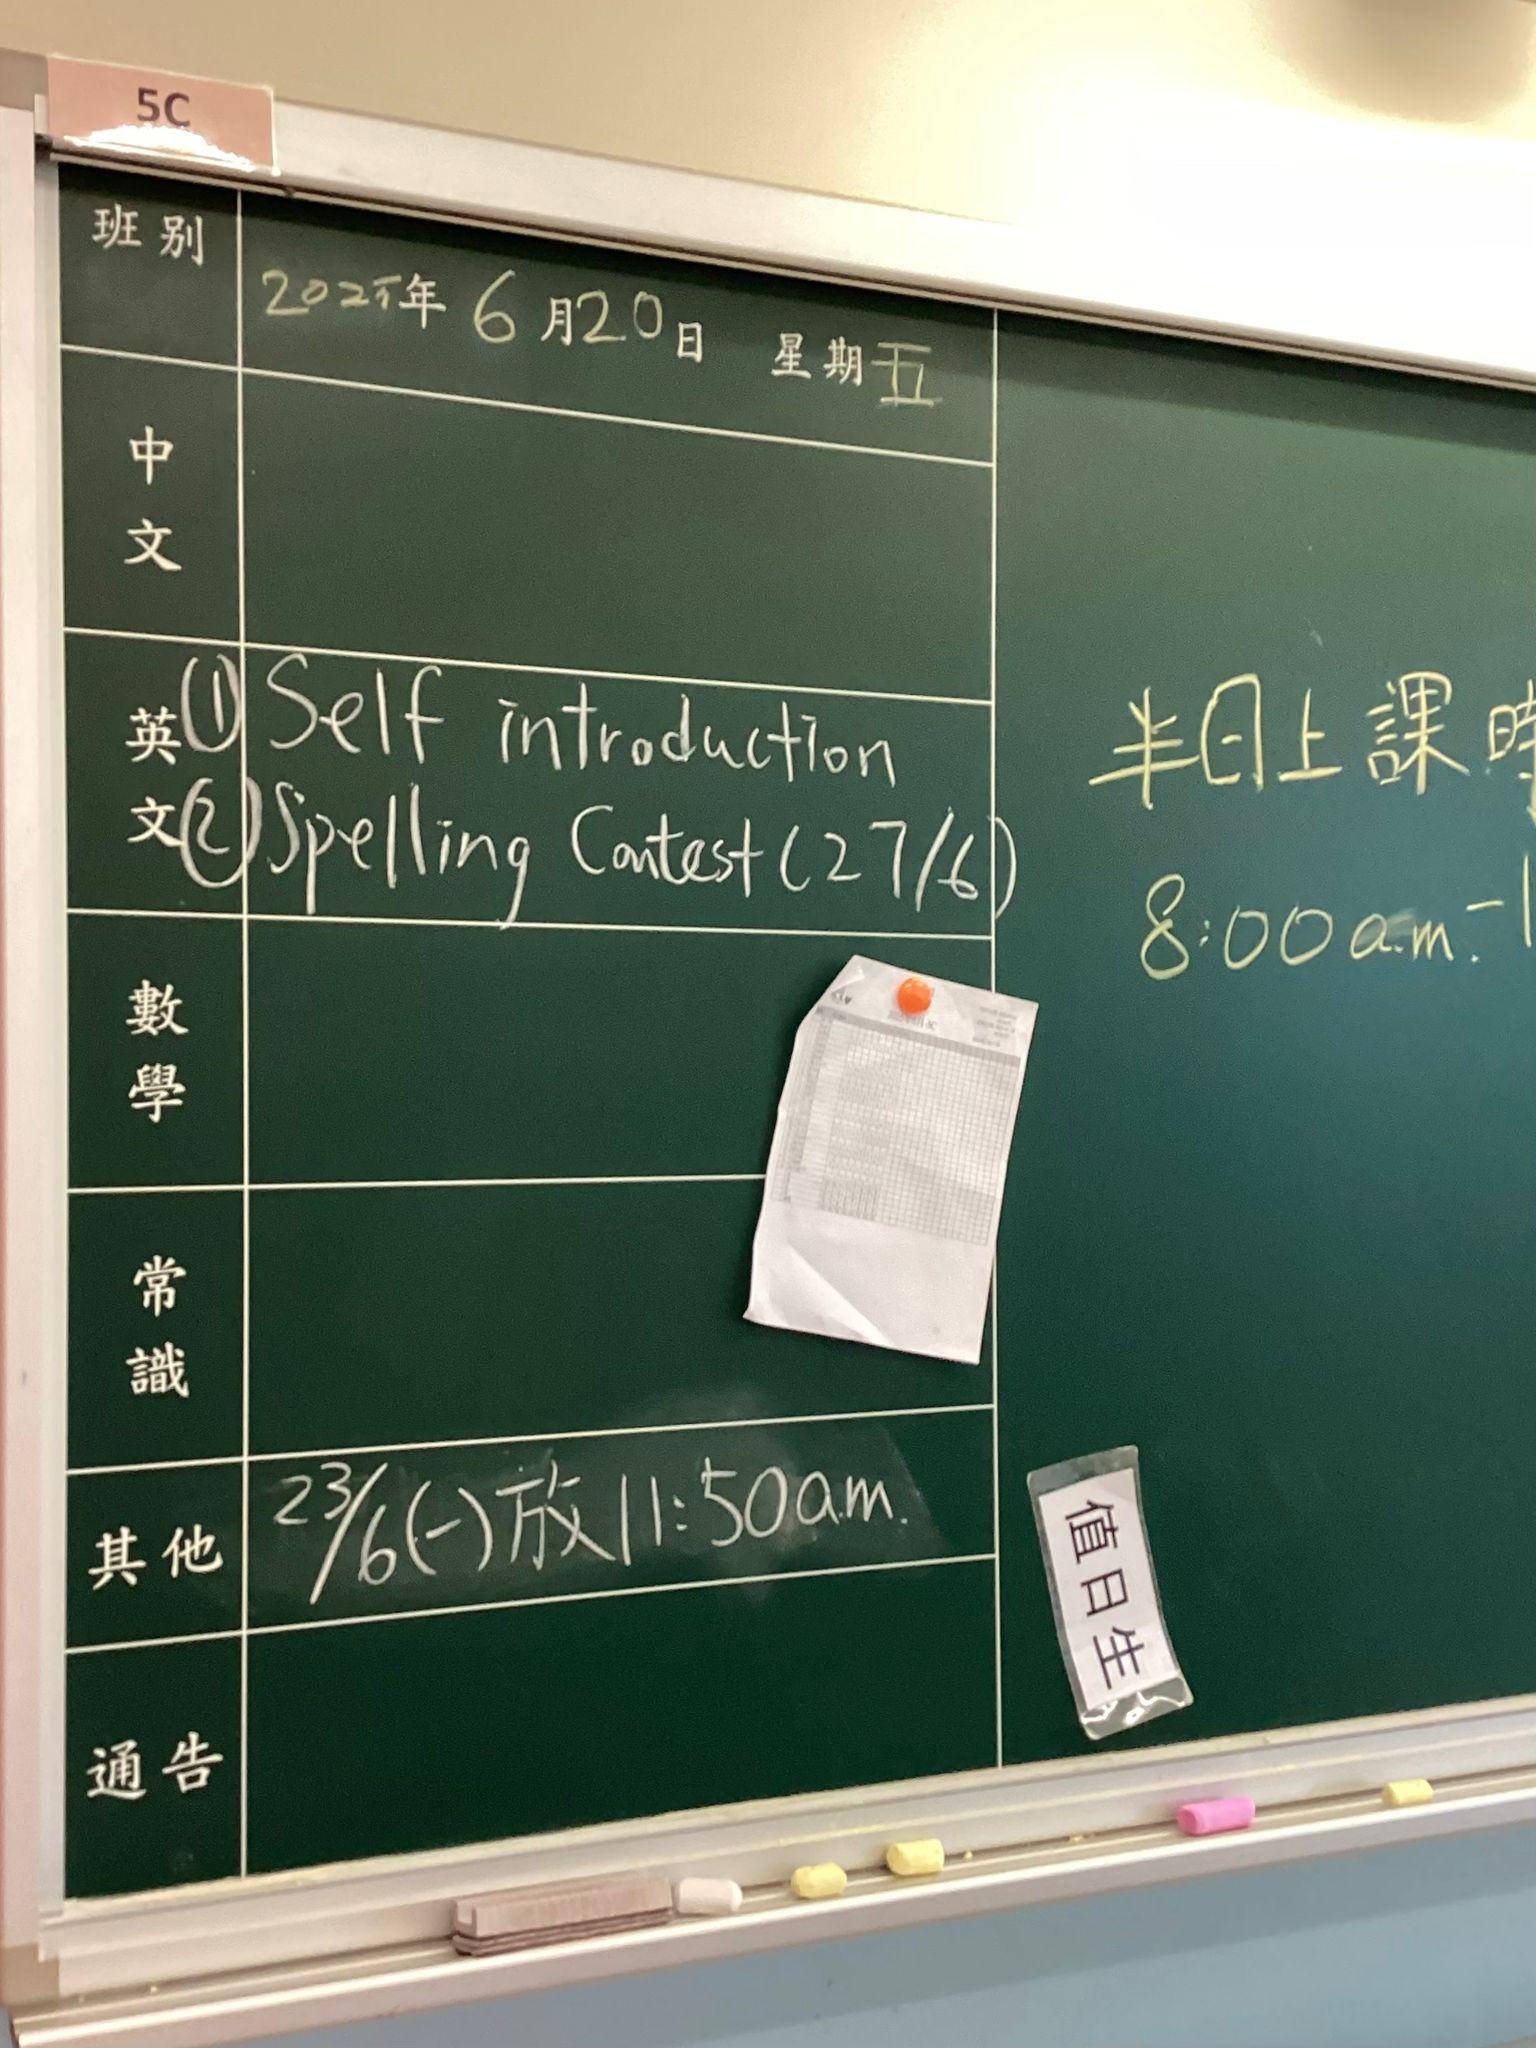 5C
班別
2025年 6月20日 星期五
中文
英文
① Self introduction
② Spelling Contest (27/6)
數學
常識
其他
23/6(一)放11:50a.m.
通告
半日上課時
8:00a.m.-1
值日生